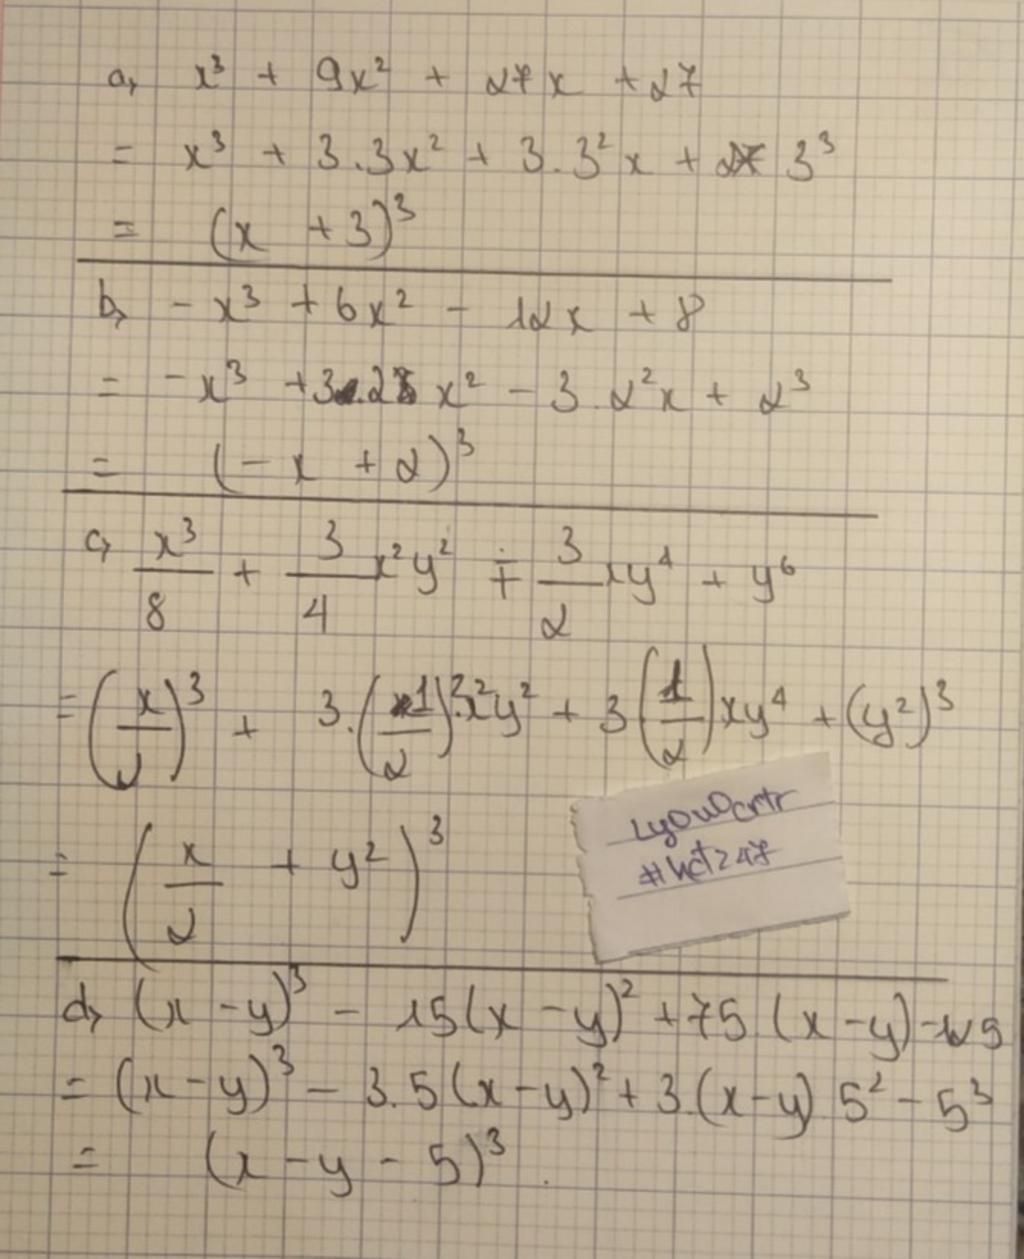 a, x³ + 9x² + 27x + 27
= x³ + 3.3x² + 3.3²x + 3³
= (x + 3)³
b, -x³ + 6x² - 12x + 8
= -x³ + 3.2x² - 3.2²x + 2³
= (-x + 2)³
c, x³/8 + 3/4 x²y² + 3/2 xy⁴ + y⁶
= (x/2)³ + 3.(1/2)².x²y² + 3(1/2)xy⁴ + (y²)³
= (x/2 + y²)³
#hct247
d, (x - y)³ - 15(x - y)² + 75(x - y) - 125
= (x - y)³ - 3.5(x - y)² + 3.(x - y) 5² - 5³
= (x - y - 5)³.